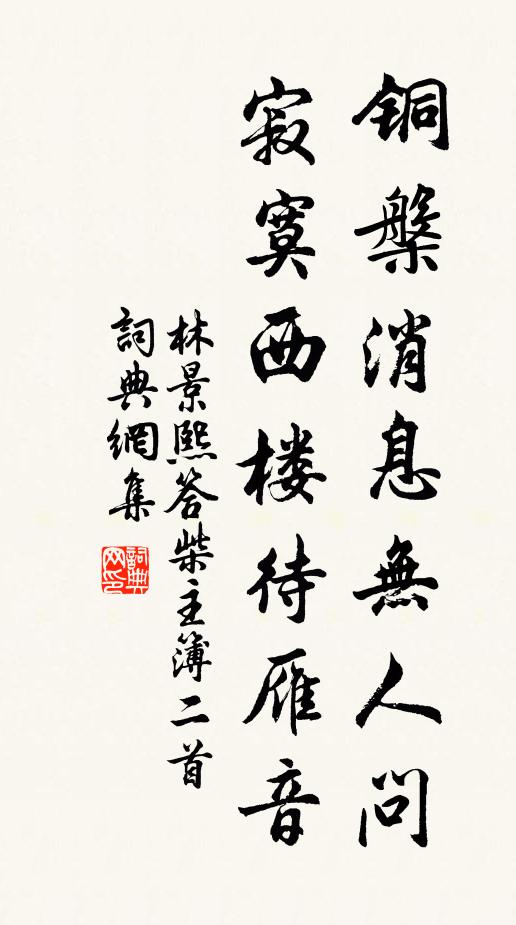 铜槃消息無人问
寂寞西楼待雁音
林景熙答柴主簿二首
詞典網集
詞典网印